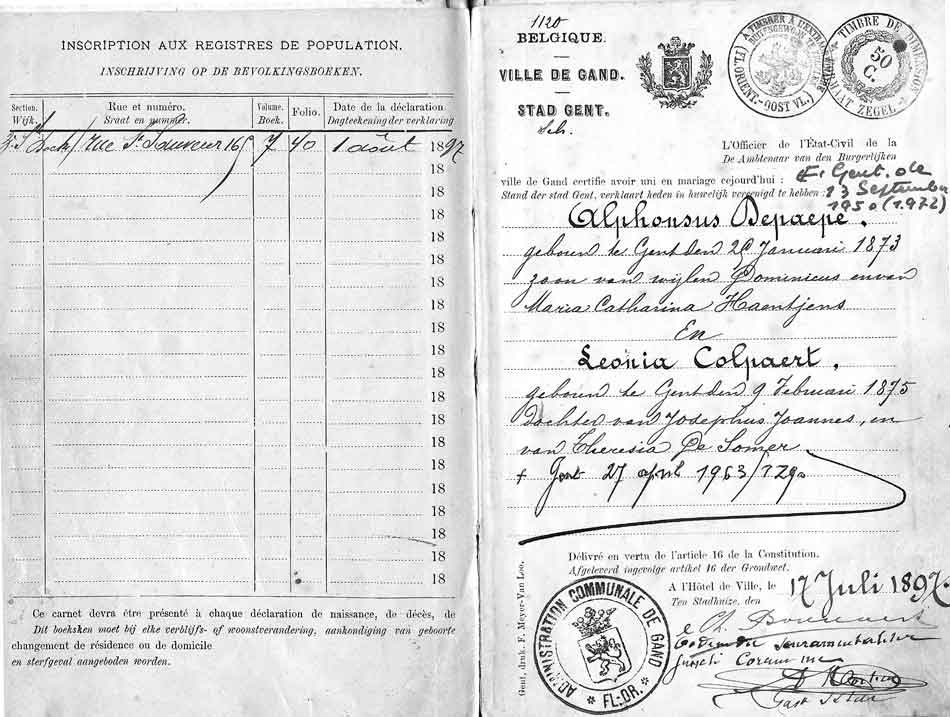 INSCRIPTION AUX REGISTRES DE POPULATION.
INSCHRIJVING OP DE BEVOLKINGSBOEKEN.
Section. Rue et numéro. Volume. Folio. Date de la déclaration
Wijk. Sraat en nummer. Boek. Dagteekening der verklaring
rue St Sauveur 165 7 40 1 août 1897
18
18
18
18
18
18
18
18
18
18
18
18
18
18
18
18
18
18
18
Ce carnet devra être présenté à chaque déclaration de naissance, de décès, de
Dit boeksken moet bij elke verblijfs- of woonstverandering, aankondiging van geboorte
changement de résidence ou de domicile
en sterfgeval aangeboden worden.
1120
BELGIQUE.
VILLE DE GAND.
STAD GENT.
TIMBRE DE DIMENSION
50 C.
(FL. ORIENT.-OOST VL.)
L'Officier de l'État-Civil de la
De Ambtenaar van den Burgerlijken
ville de Gand certifie avoir uni en mariage cejourd'hui :
Stand der stad Gent, verklaart heden in huwelijk vereenigd te hebben :
Gent, de
13 September
1950 (1972)
Alphonsus Depaepe,
geboren te Gent den 29 Januari 1873
zoon van wijlen Dominicus en van
Maria Catharina Haentjens
En
Leonia Colpaert,
geboren te Gent den 9 Februari 1875
dochter van Josephus Joannes, en
van Theresia De Somer
† Gent 27 april 1963/1290
Délivré en vertu de l'article 16 de la Constitution.
Afgeleverd ingevolge artikel 16 der Grondwet.
A l'Hôtel de Ville, le 17 Juli 1897.
Ten Stadhuize, den
ADMINISTRATION COMMUNALE DE GAND
* FL-OR. *
Gent, druk. F. Meyer-Van Loo.